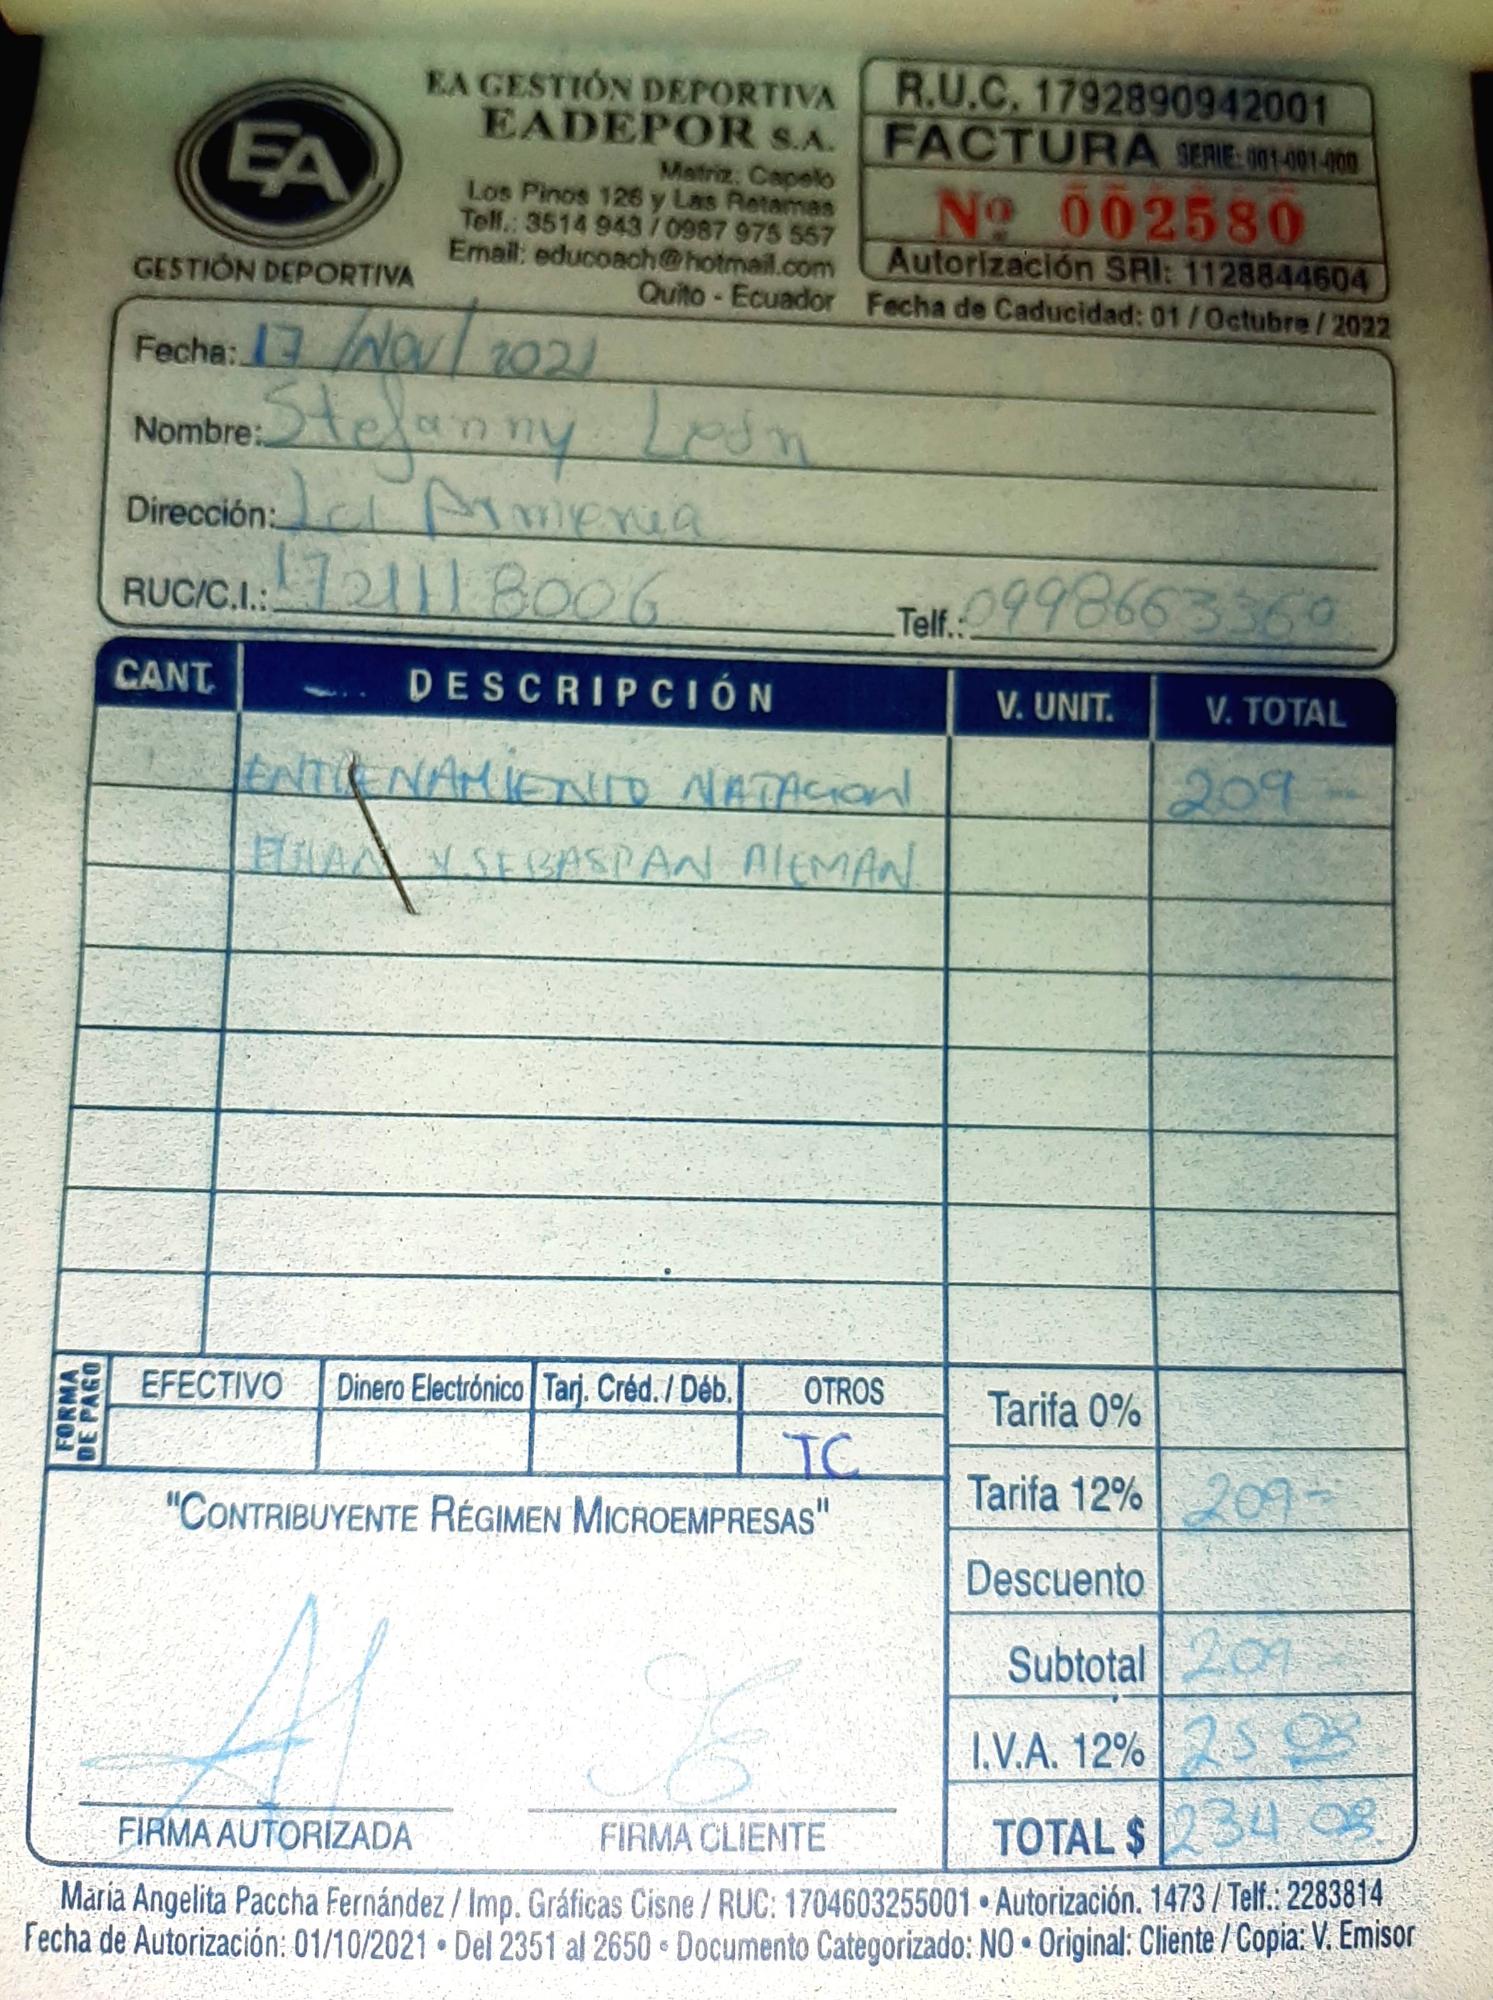 EA
GESTIÓN DEPORTIVA
EA GESTIÓN DEPORTIVA
EADEPOR S.A.
Matriz: Capelo
Los Pinos 126 y Las Retamas
Telf.: 3514 943 / 0987 975 557
Email: educoach@hotmail.com
Quito - Ecuador
R.U.C. 1792890942001
FACTURA SERIE: 001-001-000
Nº 002580
Autorización SRI: 1128844604
Fecha de Caducidad: 01 / Octubre / 2022
Fecha: 17 /Nov/ 2021
Nombre: Stefanny León
Dirección: La Armenia
RUC/C.I.: 1721118006 Telf.: 0998663360
CANT. DESCRIPCIÓN V. UNIT. V. TOTAL
ENTRENAMIENTO NATACION 209 -
Y SEBASTIAN ALEMAN
FORMA DE PAGO
EFECTIVO Dinero Electrónico Tarj. Créd. / Déb. OTROS
TC
Tarifa 0%
Tarifa 12% 209 -
Descuento
Subtotal 209 -
I.V.A. 12% 25 08
TOTAL $ 234 08
"CONTRIBUYENTE RÉGIMEN MICROEMPRESAS"
FIRMA AUTORIZADA FIRMA CLIENTE
María Angelita Paccha Fernández / Imp. Gráficas Cisne / RUC: 1704603255001 • Autorización. 1473 / Telf.: 2283814
Fecha de Autorización: 01/10/2021 • Del 2351 al 2650 • Documento Categorizado: NO • Original: Cliente / Copia: V. Emisor